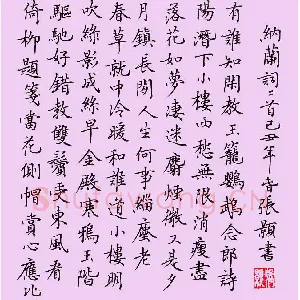 納蘭詞二首己丑年春張顥書
有誰知閑教玉籠鸚鵡念郎詩
陽潛下小樓西愁無限消瘦盡
落花如夢淒迷麝煙微又是夕
月鎮長閑人生何事緇塵老
春草就中冷暖和誰道小樓明
吹綠影成絲早金殿寒鴉玉階
驅馳好錯教雙鬢受東風看
倚柳題箋當花側帽賞心應比
Shufawang.CN